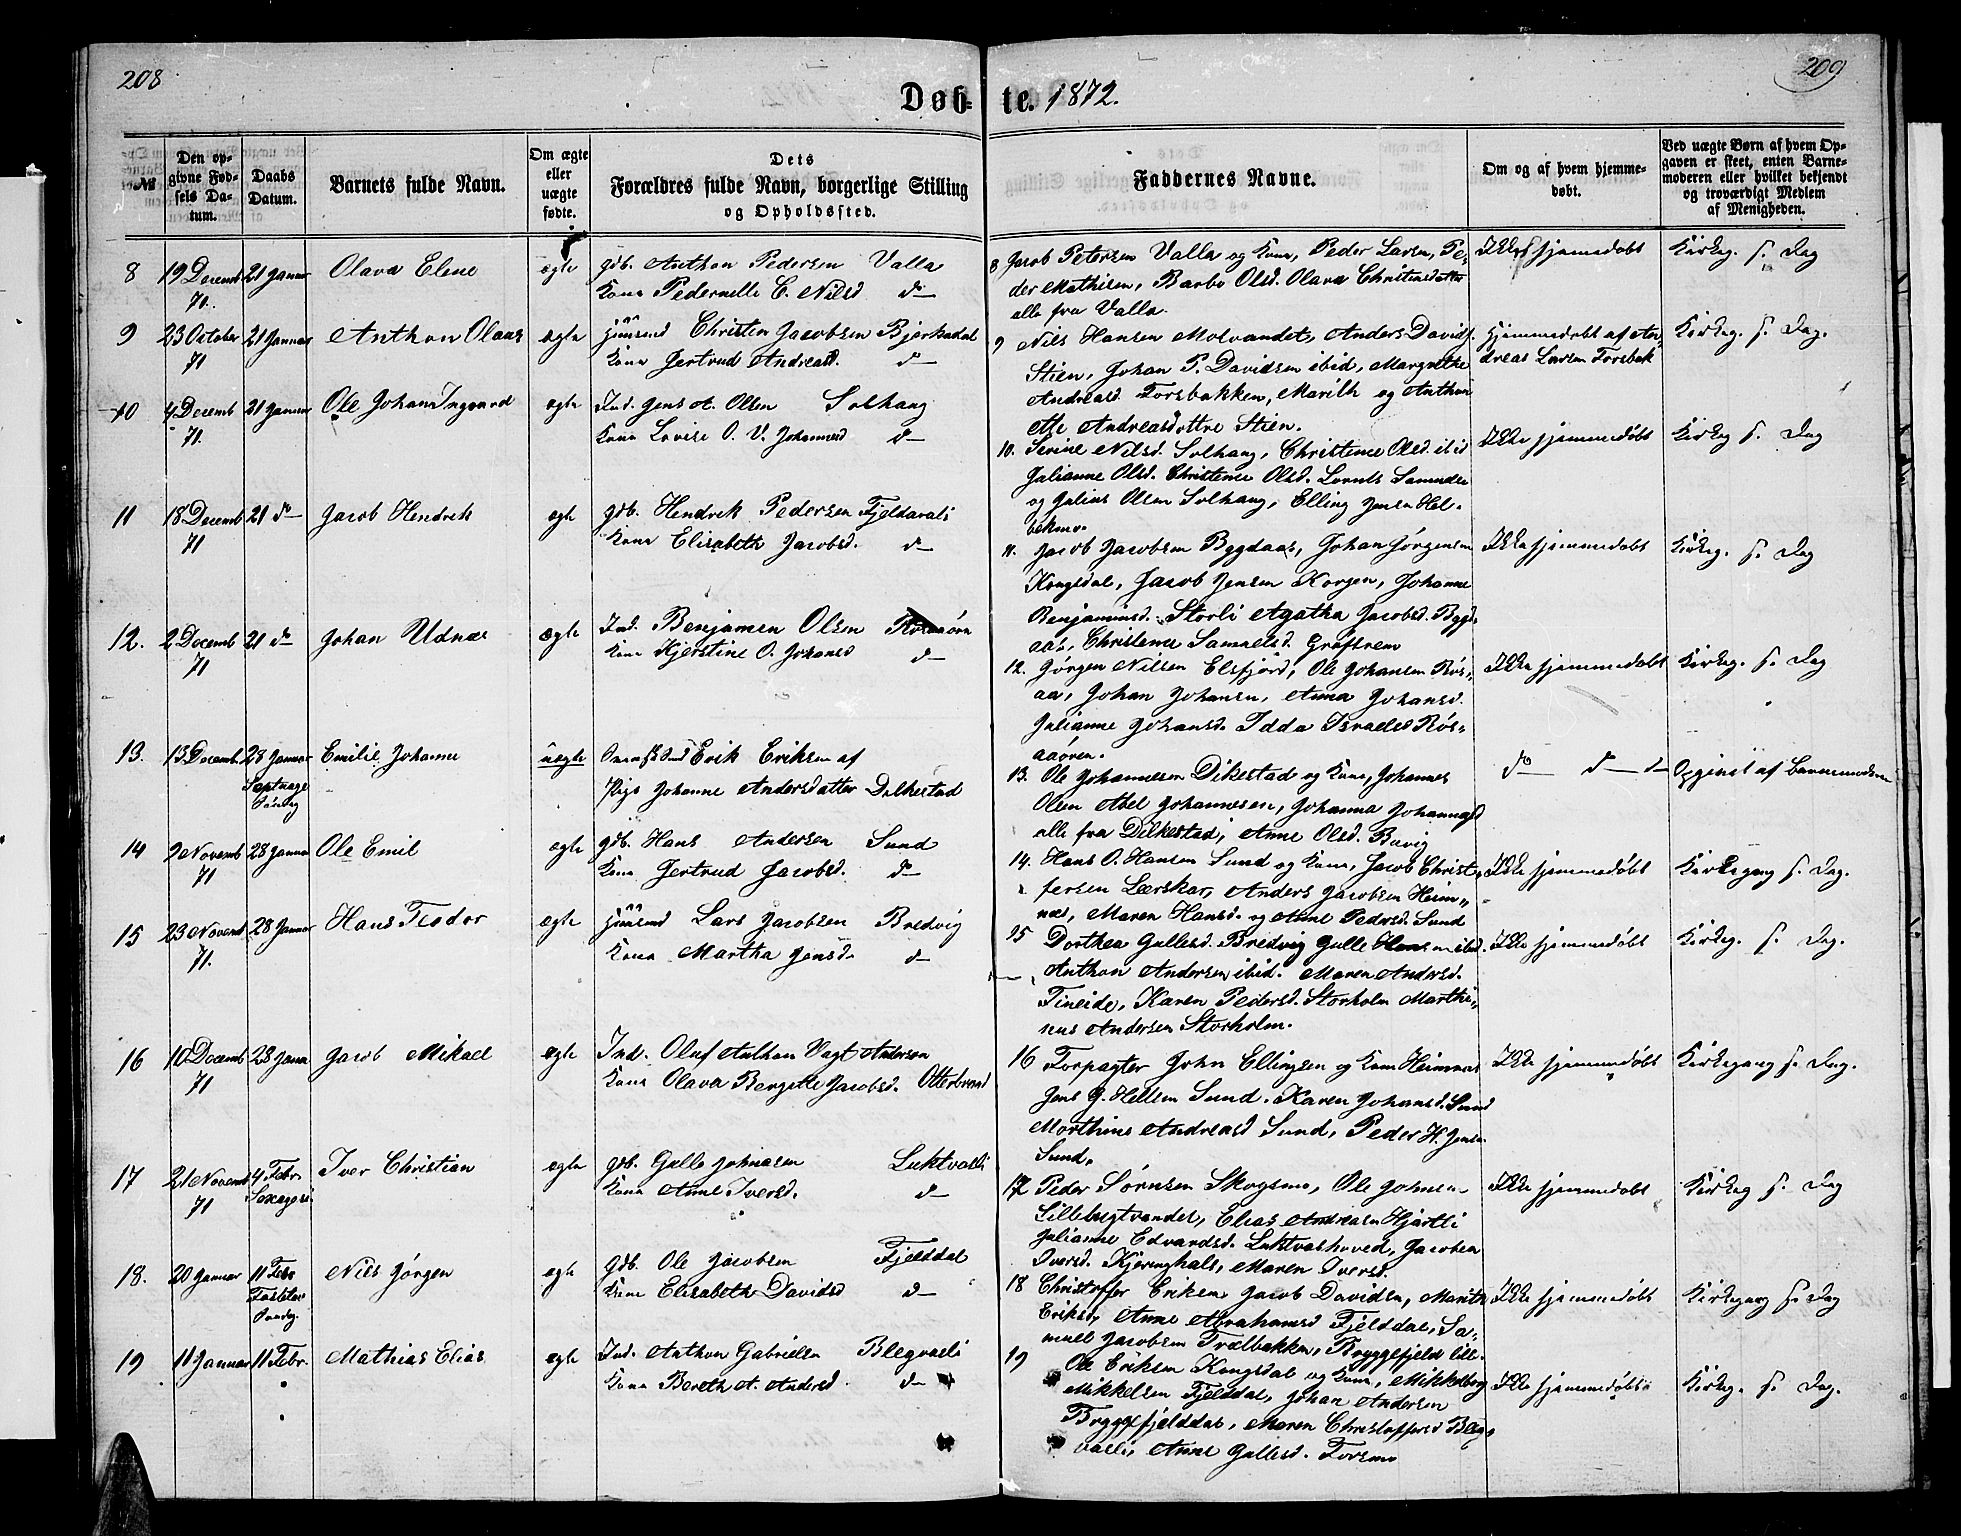 208
209
Døb- te. 1872.
№
Den op-
givne Fød-
sels Da-
tum.
Daabs
Datum.
Barnets fulde Navn.
Om ægte
eller
uægte
fødte.
Dets
Forældres fulde Navn, borgerlige Stilling
og Opholdssted.
Faddernes Navne.
Om og af hvem hjemme-
døbt.
Ved uægte Børn af hvem Op-
gaven er skeet, enten Barne-
moderen eller hvilket bekjendt
og troværdigt Medlem
af Menigheden.
8 19 Decemb 21 Januar Olava Elene ægte gdb. Anthon Pedersen Valla
71. Kone Pedernelle C. Nilsd do
8 Jacob Petersen Valla og Kone, Peder Larsen, Pe-
der Mathisen, Barbo Olsd. Olava Christensdatter
alle fra Valla.
Ikke hjemmedøbt Kirkeg. s. Dag
9 23 October 21 Januar Anthon Olaus ægte Huusmd Christen Jacobsen Bjerkadal
71 Kone Gertrud Andreasd. do
9 Nils Hansen Molvandet, Anders Davids.
Stien, Johan P. Davidsen ibid, Margrethe
Andreasd Forsbakken, Marith og Anthon
ette Andreasdøttre Stien.
Hjemmedøbt af An-
dreas Larsen Forsbak
Kirkeg. s. Dag.
10 4 Decemb 21 Januar Ole Johan Ingvard ægte Ind. Jens A. Olsen Solhaug
71. Kone Lovise O. V. Johannesd do
10. Serine Nilsd. Solhaug, Christense Olsd. ibid
Julianne Olsd. Christense Olsd. Lornts Samuelse
og Julius Olsen Solhaug, Elling Jensen Hel-
bekmo.
Ikke hjemmedøbt Kirkeg s. Dag
11 18 Decemb 21 do Jacob Hendrik ægte gdb. Hendrik Pedersen Fjeldavali
71 Kone Elisabeth Jacobsd. do
11. Jacob Jacobsen Bygdaas, Johan Jørgensen
Kongsdal, Jacob Jensen Korgen, Johanne
Benjaminsd. Storli Agatha Jacobsd. Bygd-
aas, Christense Samuelsd. Grøftrem
Ikke hjemmedøbt Kirkeg. s. Dag
12. 2 Decemb 21 do Johan Udnæs ægte Ind. Benjamen Olsen
71 Kone Kjerstine O. Johansd do
12. Jørgen Nilsen Elsfjord, Ole Johansen Røs-
aa, Johan Johansen, Anna Johansd.
Julianne Johansd. Idda Israelsd Røs-
aaøren.
Ikke hjemmedøbt Kirkeg. s. Dag
13. 13 Decemb. 28 Januar Emilie Johanne uægte Erik Eriksen af
Septuage Søndag Pige Johanne Andersdatter Dilkestad
13. Ole Johannesen Dilkestad og Kone, Johannes
Olsen Abel Johannesen, Johanna Johannesd
alle fra Dilkestad, Anne Olsd. Bavig
do do do Opgivet af Barnemoderen
14 9 Novemb 28 Januar Ole Emil ægte gdb. Hans Andersen Sund
71 Kone Gertrud Jacobsd. do
14. Hans O. Hansen Sund og Kone, Jacob Christ-
fersen Lerskar, Anders Jacobsen Heim-
næs, Maren Hansd. og Anne Pedersd. Sund
Ikke hjemmedøbt Kirkegang s. Dag.
15 23 Novemb 28 Januar Hans Teodor ægte Huusmd Lars Jacobsen Bredvig
71. Kone Martha Jensd. do
15 Dorthea Gullesd. Bredvig Gulle Hansen ibid.
Anthon Andersen ibid. Maren Andersd.
Tineide, Karen Pedersd. Storholm Marthi-
nus Andersen Storholm.
Ikke hjemmedøbt Kirkeg. s. Dag.
16 10 Decemb 28 Janua Jacob Mikael ægte Ind. Oluf Anthon Vogt Andersen
71 Kone Olava Bergitte Jacobsd. Otterbrand
16 Forpagter John Ellingsen og Kone Heimnæs
Jens G. Hellsen Sund. Karen Johansd. Sund
Morthine Andreasd Sund, Peder H. Jensen
Sund.
Ikke hjemmedøbt Kirkegang s. Dag.
17 21 Novemb 4 Febr. Iver Christian ægte gdb. Gulle Johnsen Luktvasli
71 Sexagesi Kone Anne Iversd. do
17 Peder Sørnsen Skogsmo, Ole Johnsen
Lillebugtvandet, Elias Andreasen Hjartli
Julianne Edvardsd. Luktvashoved, Jacobea
Iversd. Kjeringhals, Maren Iversd.
Ikke hjemmedøbt Kirkeg s. Dag
18. 20 Januar 11 Febr Nils Jørgen ægte gdb. Ole Jacobsen Fjelddal
Fastelav Søndag. Kone Elisabeth Davidsd do
18 Christoffer Eriksen Jacob Davidsen, Marith
Eriksd, Anne Abrahamsd Fjelddal, Sa-
muel Jacobsen Trælbakken, Bryggefjeld lille.
Ikke hjemmedøbt Kirkegang s. Dag
19 11 Januar 11 Febr. Mathias Elias ægte Ind. Anthon Gabrielsen Blegvasli
Kone Bereth A. Andersd. do
19 Ole Eriksen Kongsdal og Kone, Mikkelborg
Mikkelsen Fjelddal, Johan Andersen
Bryggefjelddal, Maren Christoffersd Bleg-
vasli, Anne Gullesd. Forsmo
Ikke hjemmedøbt Kirkeg. s. Dag.